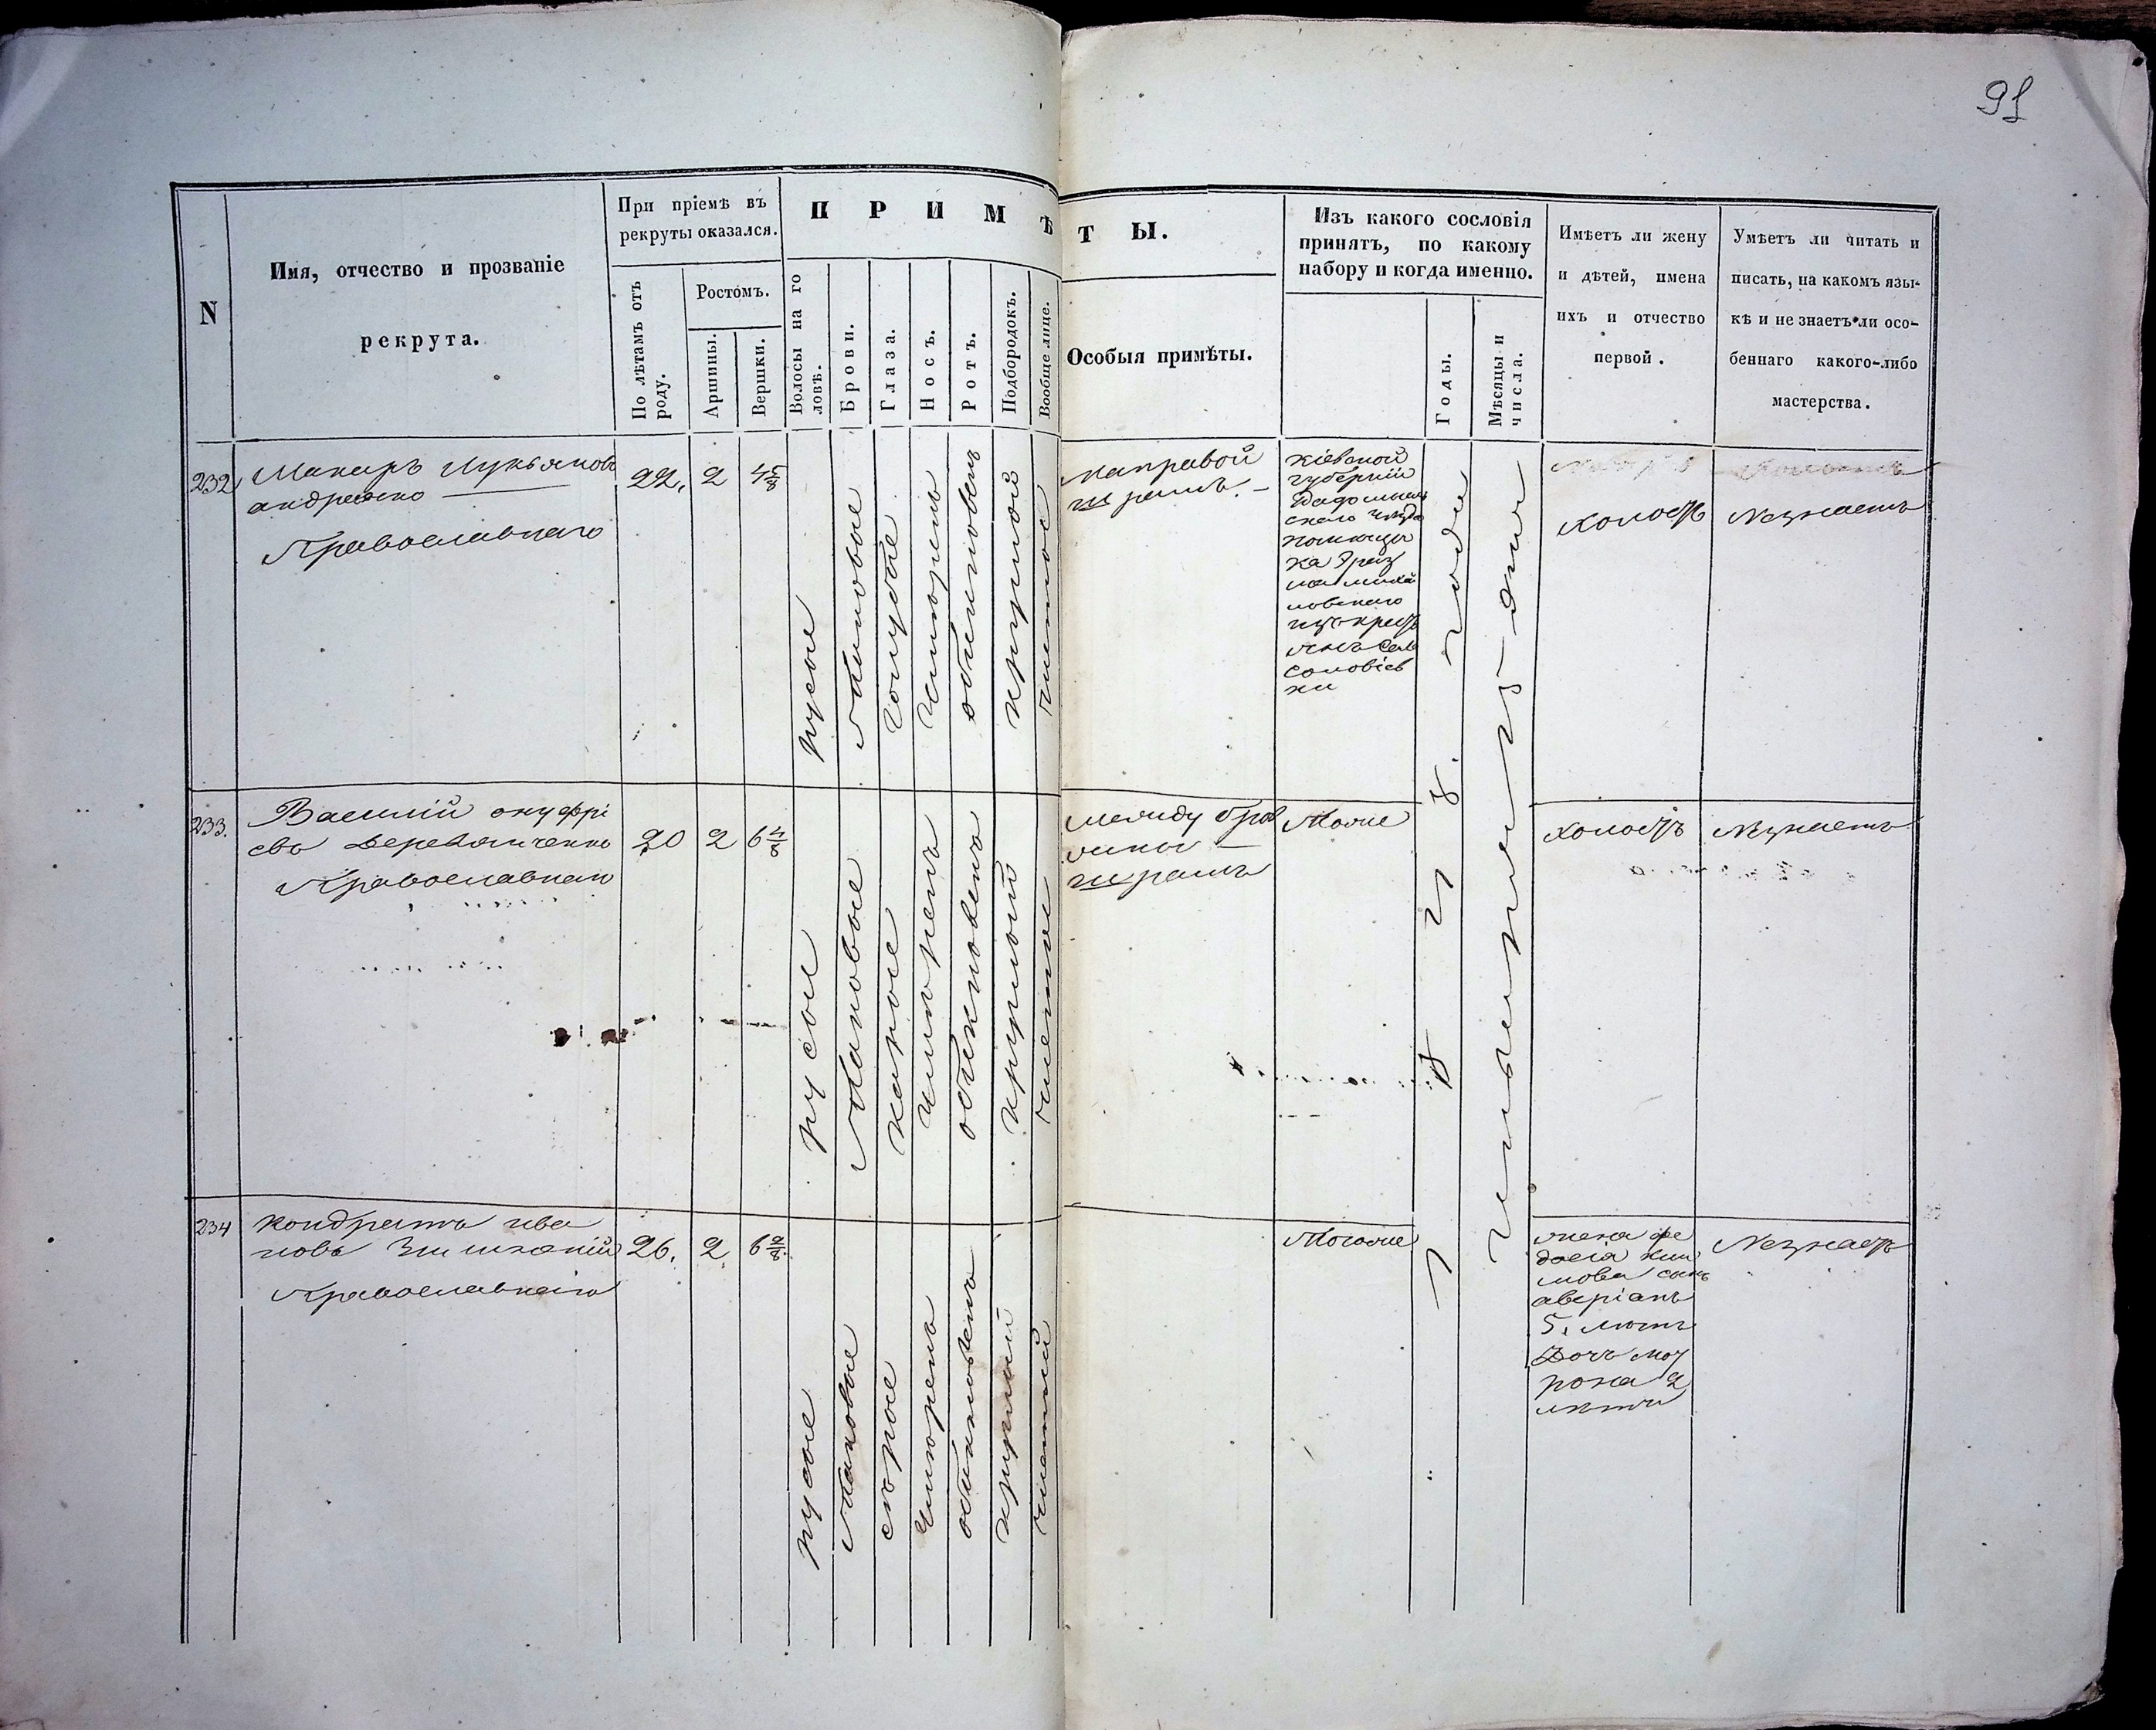 91
N
Имя, отчество и прозваніе
рекрута.
При пріемѣ въ
рекруты оказался.
По лѣтамъ отъ
роду.
Ростомъ.
Аршины.
Вершки.
ПРИМѢТЫ.
Волосы на го
ловѣ.
Брови.
Глаза.
Носъ.
Ротъ.
Подбородокъ.
Вообще лице.
Особыя примѣты.
Изъ какого сословія
принятъ, по какому
набору и когда именно.
Годы.
Мѣсяцы и
числа.
Имѣетъ ли жену
и дѣтей, имена
ихъ и отчество
первой.
Умѣетъ ли читать и
писать, на какомъ язы-
кѣ и не знаетъ ли осо-
беннаго какого-либо
мастерства.
232
Макаръ Лукьяновъ
андреенко
Православнаго
22.
2
4 5/8
русые
голубые
обикновенъ
круглой
чистое
направой
шрамъ.
кіевской
губерніи
помющи
ка
ловскаго
изъ крест
янъ села
соловіев
ки
холостъ
Незнаетъ
233.
Василій онуфрі
евъ Деревянченко
Православнаго
20
2
6 4/8
русые
каріе
обикновенъ
круглой
чистое
между бров
шрамъ
Тоже
холостъ
Незнаетъ
234
кондратъ ива
новъ
Православнаго
26.
2
6 2/8
русые
сѣрые
обикновенъ
круглой
жена фе
досія
мова сынъ
аверіанъ
5. лѣтъ
Дочь
2
лѣти
Незнаетъ